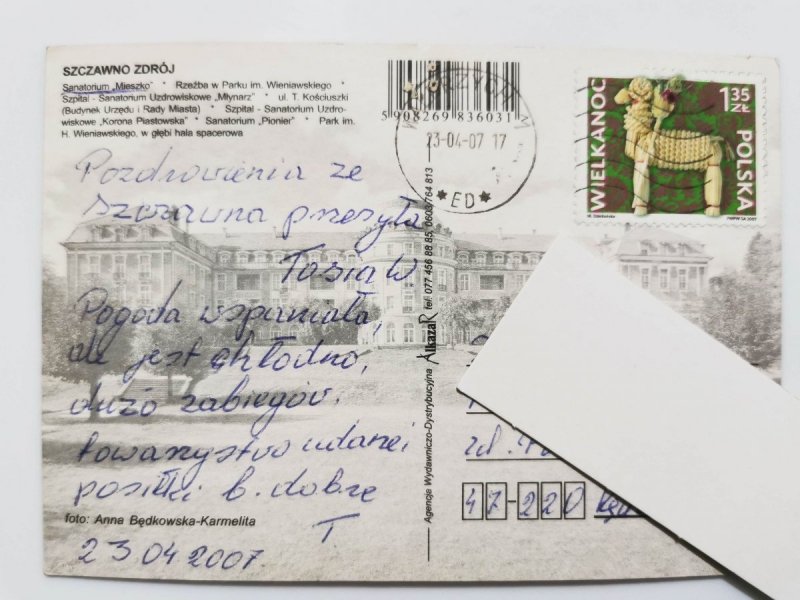 SZCZAWNO ZDRÓJ
Sanatorium „Mieszko” * Rzeźba w Parku im. Wieniawskiego *
Szpital - Sanatorium Uzdrowiskowe „Młynarz” * ul. T. Kościuszki
(Budynek Urzędu i Rady Miasta) * Szpital - Sanatorium Uzdro-
wiskowe „Korona Piastowska” * Sanatorium „Pionier” * Park im.
H. Wieniawskiego, w głębi hala spacerowa
5 908269 836031
23-04-07 17
* ED *
WIELKANOC
1,35 ZŁ
POLSKA
PWPW SA 2007
Pozdrowienia ze
Szczawna przesyła
Tosia W
Pogoda wspaniała,
ale jest chłodno,
dużo zabiegów,
towarzystwo udane,
posiłki b. dobre
T.
foto: Anna Będkowska-Karmelita
23 04 2007.
Agencja Wydawniczo-Dystrybucyjna AlkazaR tel. 077 456 88 85, 0603/764 813
ul.
47-220